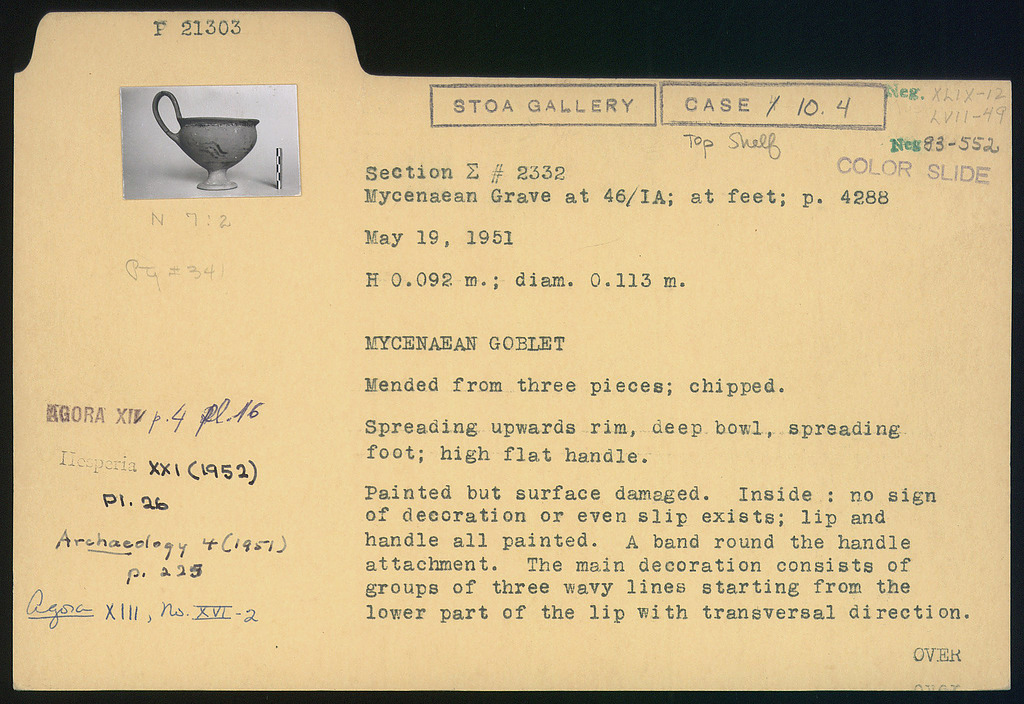 P 21303
STOA GALLERY
CASE Y 10.4
Top Shelf
Neg. XLIX-12
LVII-49
Neg 83-552
COLOR SLIDE
N 7:2
Ptg #341
Section Σ # 2332
Mycenaean Grave at 46/IA; at feet; p. 4288
May 19, 1951
H 0.092 m.; diam. 0.113 m.
MYCENAEAN GOBLET
Mended from three pieces; chipped.
Spreading upwards rim, deep bowl, spreading
foot; high flat handle.
Painted but surface damaged. Inside : no sign
of decoration or even slip exists; lip and
handle all painted. A band round the handle
attachment. The main decoration consists of
groups of three wavy lines starting from the
lower part of the lip with transversal direction.
OVER
AGORA XIV p.4 Pl.16
Hesperia XXI (1952)
Pl. 26
Archaeology 4 (1951)
p. 225
Agora XIII, No. XVI-2